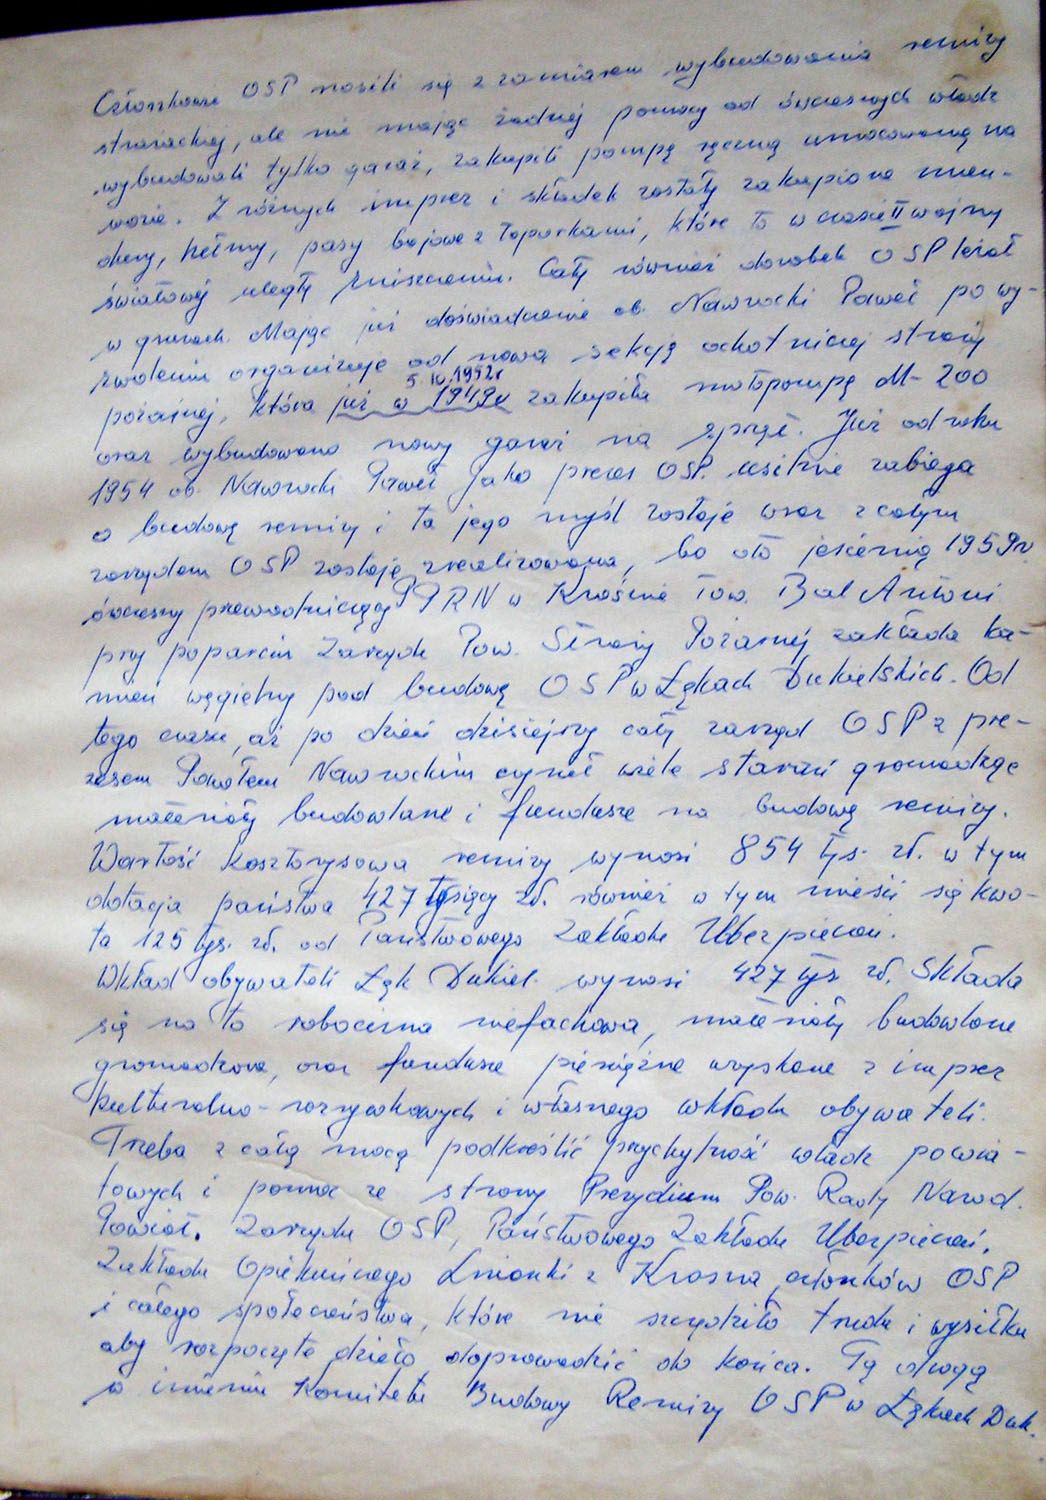 Członkowie OSP nosili się z zamiarem wybudowania remizy
strażackiej, ale nie mając żadnej pomocy od ówczesnych władz
wybudowali tylko garaż, zakupili pompę ręczną umocowaną na
wozie. Z różnych imprez i składek zostały zakupione mun-
dury, hełmy, pasy bojowe z toporkami, które to w czasie II wojny
światowej uległy zniszczeniu. Cały również dorobek OSP leżał
w gruzach. Mając już doświadczenie ob. Nawrocki Paweł po wy-
zwoleniu organizuje od nowa sekcję ochotniczej straży
5.10.1952r
pożarnej, która już w 1949r zakupiła motopompę M-200
oraz wybudowano nowy garaż na sprzęt. Już od roku
1954 ob. Nawrocki Paweł jako prezes OSP. usilnie zabiega
o budowę remizy i ta jego myśl zostaje wraz z całym
zarządem OSP zostaje zrealizowana, bo oto jesienią 1959r.
ówczesny przewodniczący PPRN w Krośnie tow. Bal Antoni
przy poparciu Zarządu Pow. Straży Pożarnej zakłada ka-
mień węgielny pod budowę OSP w Łękach Dukielskich. Od
tego czasu, aż po dzień dzisiejszy cały zarząd OSP z pre-
zesem Pawłem Nawrockim czynił wiele starań gromadząc
materiały budowlane i fundusze na budowę remizy.
Wartość kosztorysowa remizy wynosi 854 tys. zł. w tym
dotacja państwa 427 tysięcy zł. również w tym mieści się kwo-
ta 125 tys. zł. od Państwowego Zakładu Ubezpieczeń.
Wkład obywateli Łęk Dukiel. wynosi 427 tys zł. Składa
się na to robocizna niefachowa, materiały budowlane
gromadzone, oraz fundusze pieniężne uzyskane z imprez
kulturalno-rozrywkowych i własnego wkładu obywateli.
Trzeba z całą mocą podkreślić przychylność władz powia-
towych i pomoc ze strony Prezydium Pow. Rady Narod.
Powiat. Zarządu OSP, Państwowego Zakładu Ubezpieczeń,
Zakładu Opiekuńczego z Krosna, członków OSP
i całego społeczeństwa, które nie szczędziło trudu i wysiłku
aby rozpoczęte dzieło doprowadzić do końca. Tą drogą
w imieniu Komitetu Budowy Remizy OSP w Łękach Duk.